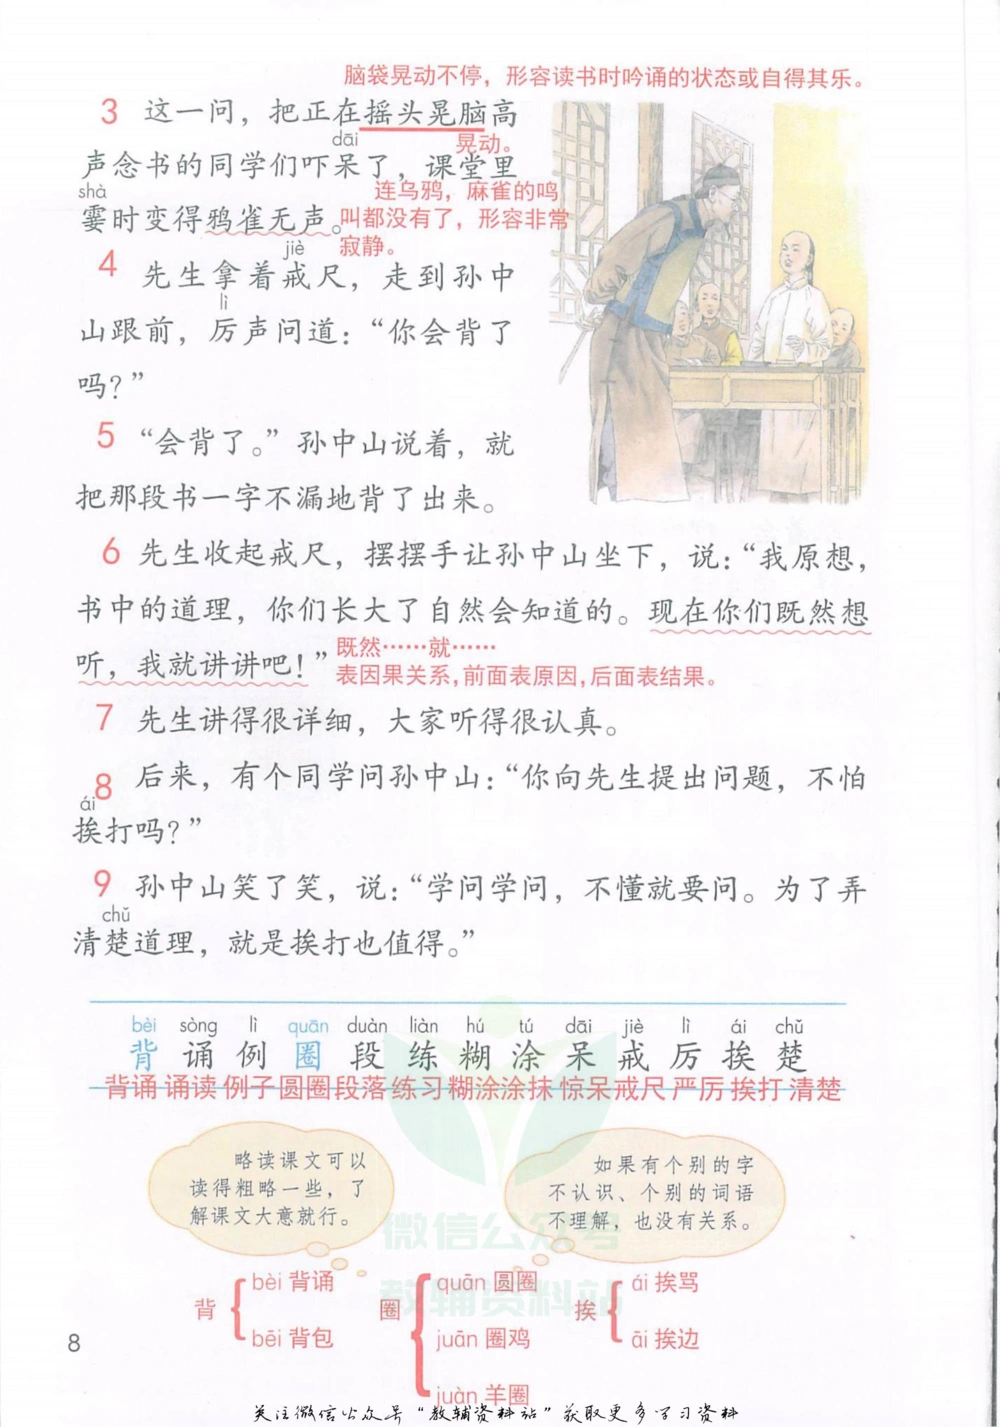 脑袋晃动不停，形容读书时吟诵的状态或自得其乐。
3 这一问，把正在摇头晃脑高
dāi
晃动。
声念书的同学们吓呆了，课堂里
shà
连乌鸦，麻雀的鸣
霎时变得鸦雀无声。
叫都没有了，形容非常
寂静。
jiè
4 先生拿着戒尺，走到孙中
lì
山跟前，厉声问道：“你会背了
吗？”
5 “会背了。”孙中山说着，就
把那段书一字不漏地背了出来。
6 先生收起戒尺，摆摆手让孙中山坐下，说：“我原想，
书中的道理，你们长大了自然会知道的。现在你们既然想
听，我就讲讲吧！”
既然……就……
表因果关系,前面表原因,后面表结果。
7 先生讲得很详细，大家听得很认真。
8 后来，有个同学问孙中山：“你向先生提出问题，不怕
ái
挨打吗？”
9 孙中山笑了笑，说：“学问学问，不懂就要问。为了弄
chǔ
清楚道理，就是挨打也值得。”
bèi sòng lì quān duàn liàn hú tú dāi jiè lì ái chǔ
背 诵 例 圈 段 练 糊 涂 呆 戒 厉 挨 楚
背诵 诵读 例子 圆圈 段落 练习 糊涂 涂抹 惊呆 戒尺 严厉 挨打 清楚
略读课文可以
读得粗略一些，了
解课文大意就行。
如果有个别的字
不认识、个别的词语
不理解，也没有关系。
微信公众号
教辅资料站
背
bèi 背诵
bēi 背包
圈
quān 圆圈
juān 圈鸡
juàn 羊圈
挨
ái 挨骂
āi 挨边
8
关注微信公众号“教辅资料站”获取更多学习资料